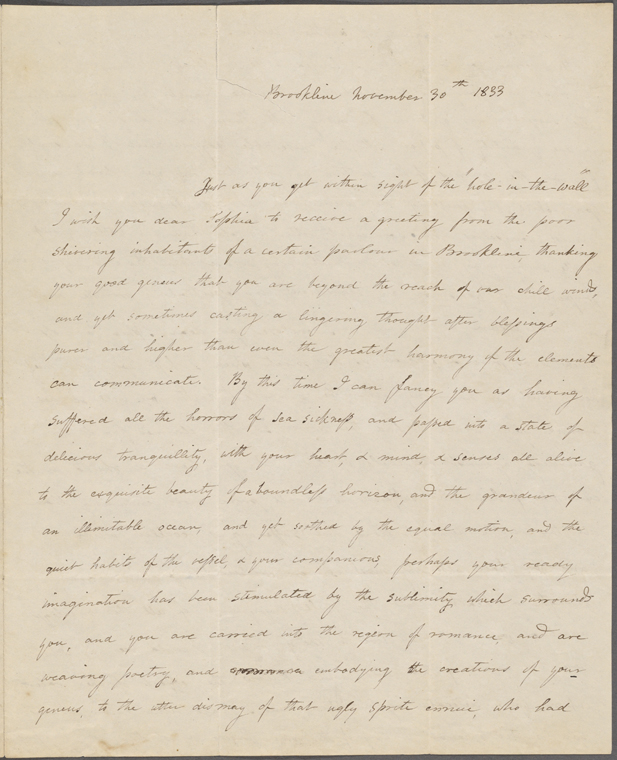 Brookline November 30th 1833
Just as you get within sight of the "hole-in-the-wall"
I wish you dear Sophia to receive a greeting from the poor
shivering inhabitants of a certain parlour in Brookline, thanking
your good genius that you are beyond the reach of our chill winds,
and yet sometimes casting a lingering thought after blessings
purer and higher than even the greatest harmony of the elements
can communicate. By this time I can fancy you as having
suffered all the horrors of sea sickness, and passed into a state of
delicious tranquillity, with your heart, & mind, & senses all alive
to the exquisite beauty of a boundless horizon, and the grandeur of
an illimitable ocean, and yet soothed by the equal motion, and the
quiet habits of the vessel, & your companions, perhaps your ready
imagination has been stimulated by the sublimity which surrounds
you, and you are carried into the region of romance and are
weaving poetry, and embodying the creations of your
genius, to the utter dismay of that ugly sprite ennui, who had